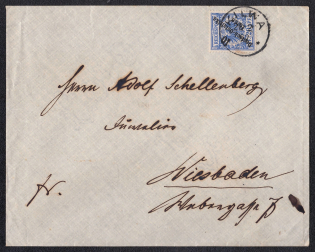 KILWA
Herrn Adolf Schellenberg
Juwelier
Wiesbaden
fr. Webergasse